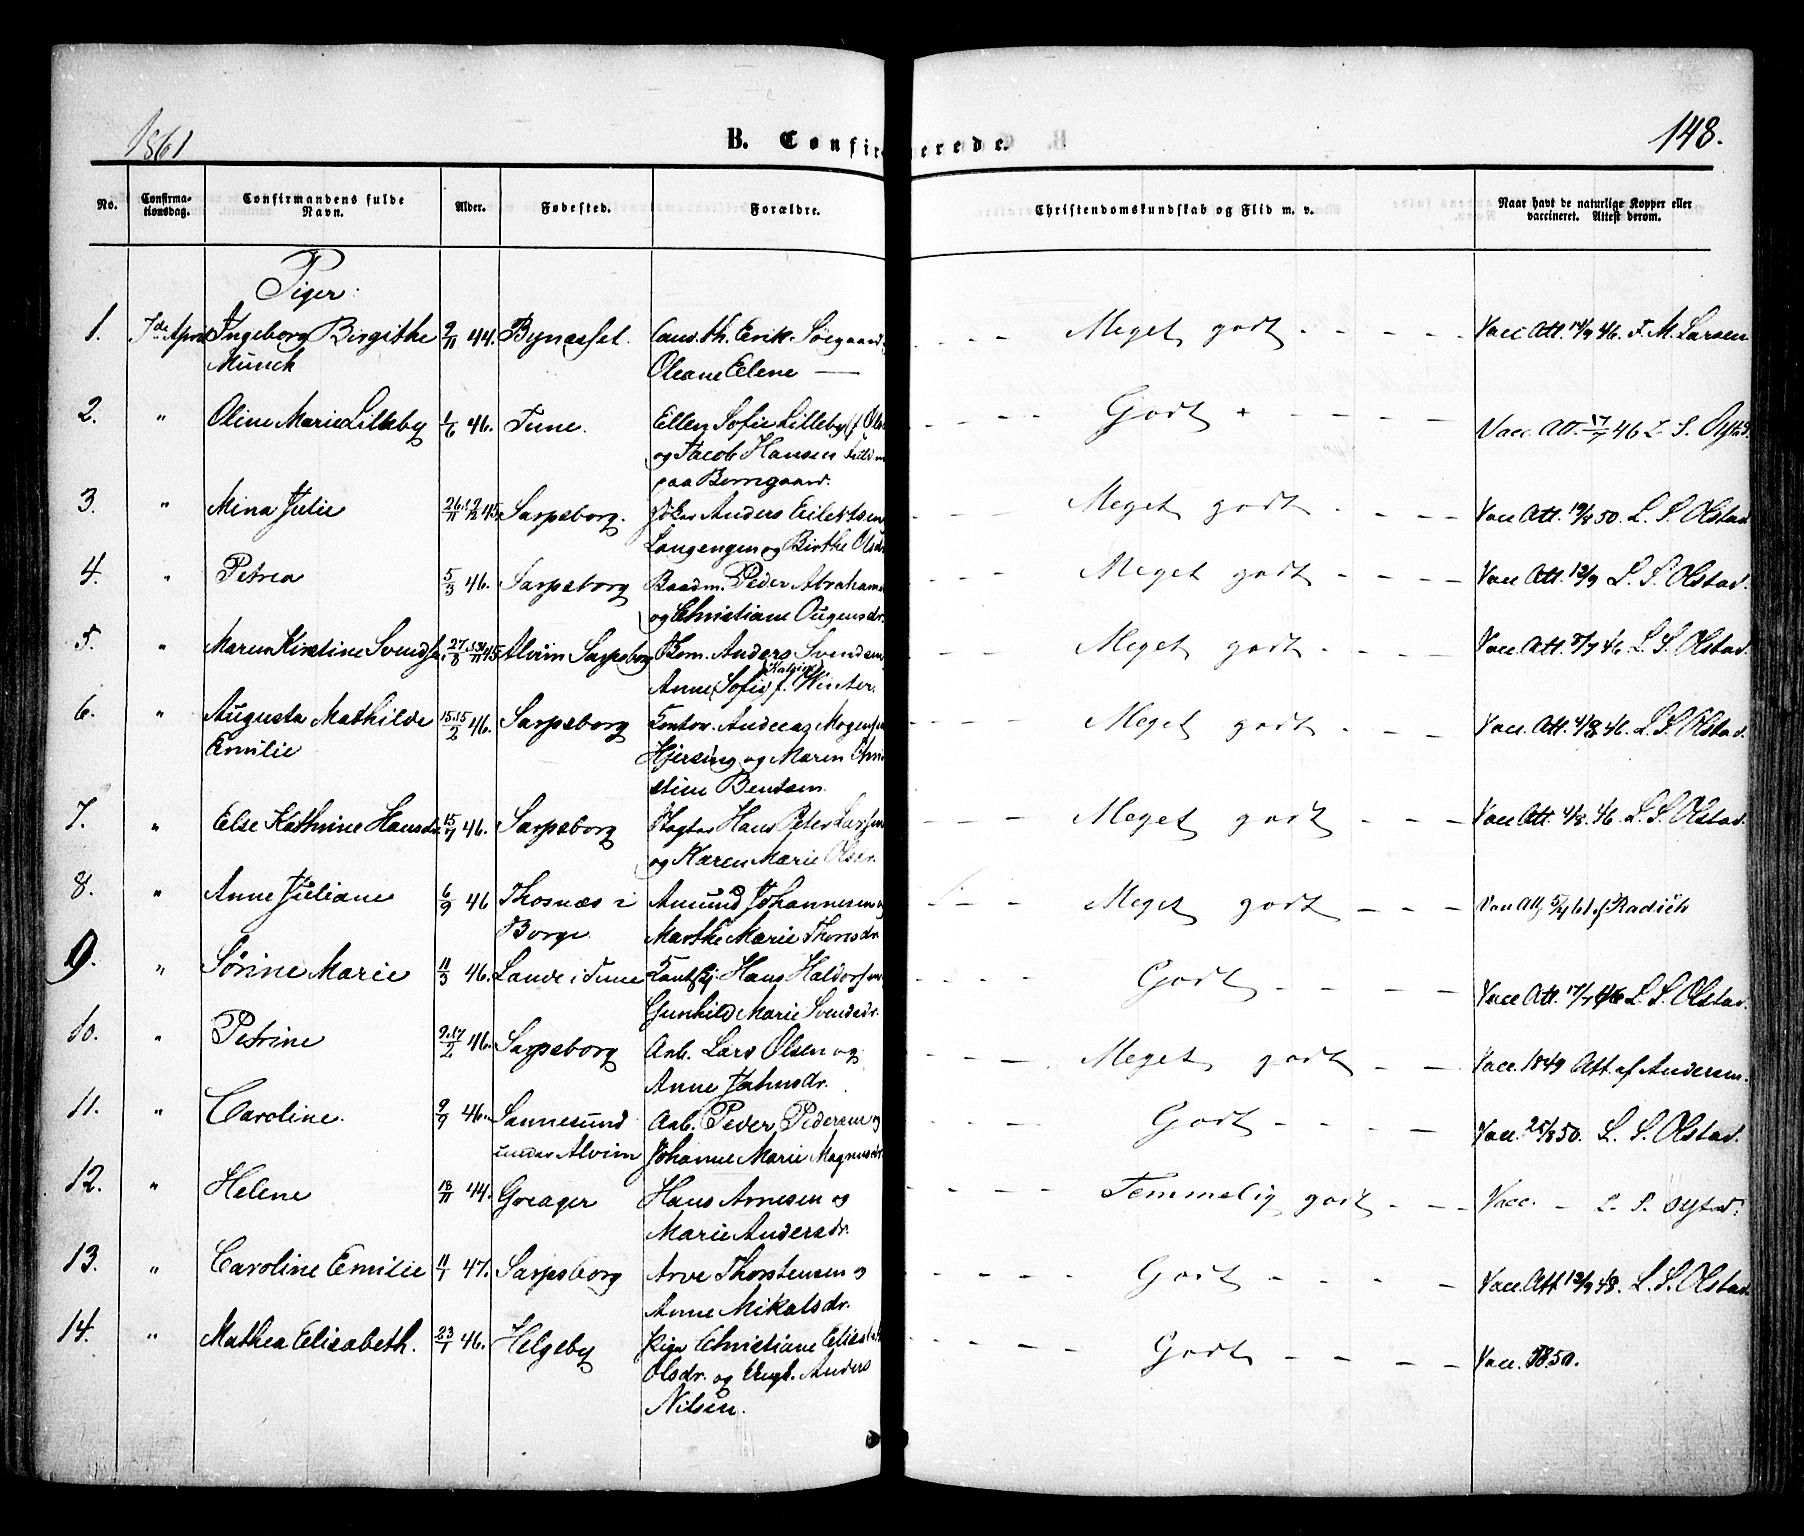 1861 B. Confirmerede. 148.
No. Confirma-tionsdag. Confirmandens fulde Navn. Alder. Fødested. Forældre. Christendomskundskab og Flid m. v. Naar havt de naturlige Kopper eller vaccineret. Attest derom.
Piger:
1. 7de April Ingeborg Birgithe 9/11 44. Bynesset. Cand. th. Erik Søegaard Meget godt Vacc. Att. 14/9 46. F. M. Larsen
Münch Oleane Elene —
2. " Oline Marie Lilleby 1/6 46. Tune. Ellen Sofie Lilleby Godt + Vacc. Att. 17/7 46 L. S.
og Jacob Hansen
paa Borregaard.
3. " Mina Julie 26/11 12/12 45. Sarpsborg. Anders Eilertsen Meget godt Vacc Att. 19/8 50. L. S. Olstad
Langengen og Birthe Olsdr
4. " Petrea 5/3 46. Sarpsborg Baadm. Peder Abrahams Meget godt Vacc Att. 12/9 L. S. Olstad.
og Christiane Ougensdr.
5. " Maren Kirstine Svends 27/8 45 Alvim Sarpsborg Anders Svendsen Meget godt Vacc. Att. 7/7 46 L. S. Olstad.
Anne (Sofie) f. Winter.
6. " Augusta Mathilde 15/2 46. Sarpsborg Kontor. Andreas Mogens Meget godt Vacc. Att. 4/8 46. L. S. Olstad.
Emilie Hjersing og Maren Chri
stine Bentsen.
7. " Else Kathrine Hansdr. 15/7 46. Sarpsborg Hans Peter Larsen Meget godt Vacc Att. 4/8 46 L. S. Olstad.
og Karen Marie Olsen.
8. " Anne Juliane 6/9 46 Thosnæs i Amund Johannesen og Meget godt Vacc Att. 5/4 61 af Radich
Borge Marthe Marie Thorsdr.
9. " Sørine Marie 11/3 46. Lande i Tune Hans Haldorsen Godt Vacc Att. 17/7 46 L. S. Olstad.
Gunhild Marie Svendsdr.
10. " Petrine 9/2 46. Sarpsborg Arb. Lars Olsen og Meget godt Vacc. 1849 Att. af Andersen.
Anne Jahnsdr.
11. " Caroline. 9/9 46. Sannesund Arb. Peder Pedersen og Godt Vacc. 25/8 50. L. S. Olstad.
under Alvim Johanne Marie Magnusdr.
12. " Helene 18/11 44. Goeager Hans Arnesen og Temmelig godt Vacc. — L. S.
Marie Andersdr.
13. " Caroline Emilie 11/1 47. Sarpsborg Arve Thorstensen og Godt Vacc Att 12/9 48. L. S. Olstad.
Anne Mikalsdr.
14. " Mathea Elisabeth. 23/1 46. Helgeby Pige Christiane Elisabet Godt Vacc. 1850.
Olsdr. og Ungk. Anders
Nilsen.